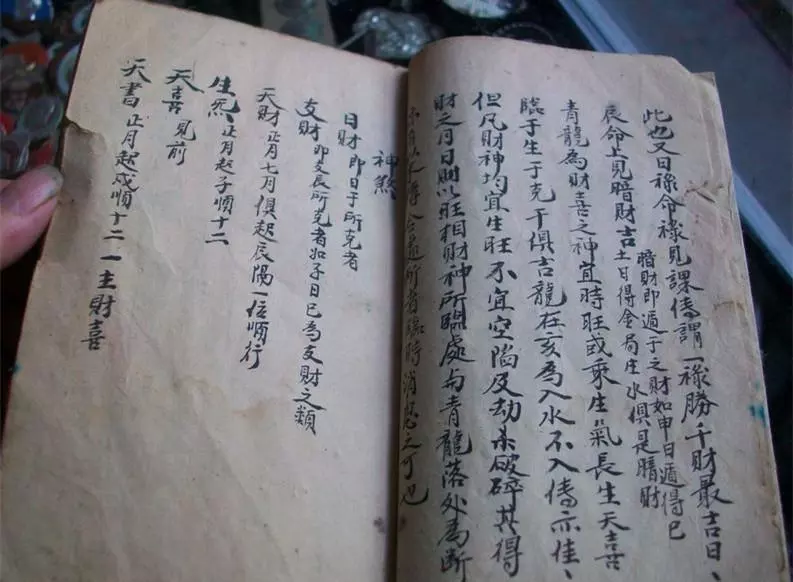 此也又曰祿命祿見課傳謂一祿勝千財最吉日、
辰命上見暗財吉
暗財即遁于之財如申日遁得巳
土日得金局庄水俱是暗財
青龍為財喜之神宜時旺或乘生氣長生天喜
臨于生于克干俱吉龍在亥為入水不入傳亦佳、
但凡財神均宜生旺不宜空陷及劫杀破碎其得
財之月日則以旺相財神所臨處与青龍落处為斷
得合所者臨時消息之可也
神煞
日財 即日于所克者
支財 即支辰所克者如子日巳為支財之類
天財 正月七月俱起辰陽一位順行
生炁 正月起子順十二
天喜 見前
天書 正月起戌順十二 一主財喜